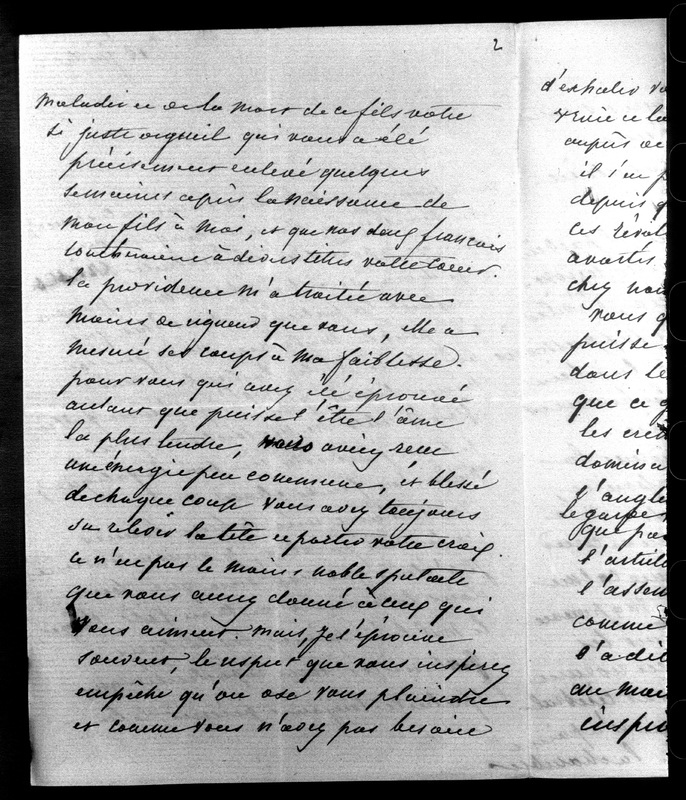 2
maladie et de la mort de ce fils votre
si juste orgueil qui vous a été
précisement enlevé quelques
semaines après la naissance de
mon fils à moi, et que nos doux français
votre coeur.
la providence m'a traitée avec
moins de rigueur que vous, elle a
mesuré ses coups à ma faiblesse.
pour vous qui avez été éprouvé
autant que puisse l'être l'âme
la plus tendre, vous aviez reçu
une énergie peu commune, et blessé
de chaque coup vous avez toujours
su relever la tête et porter votre croix.
ce n'est pas le moins noble spectacle
que vous aurez donné à ceux qui
vous aiment. mais, je l'éprouve
souvent, le respect que vous inspirez
empêche qu'on ose vous plaindre
et comme vous n'avez pas besoin
d'exhaler vo
et la
auprès de
il s'en p
depuis q
ces révol
avortés
chez nou
vous q
puisse
dans le
que ce g
les cré
domina
l'angle
le gar
que pas
l'articl
l'assem
comme
s'a di
au mo
inspi